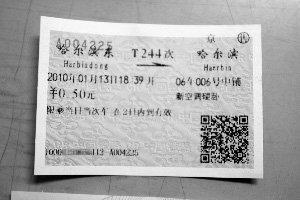 A004225
京
哈尔滨东 T244次 哈尔滨
Harbindong Haerbin
2010年01月13日18:39开 06车006号中铺
¥0.50元 新空调硬卧
限乘当日当次车 在2日内到有效
A004225